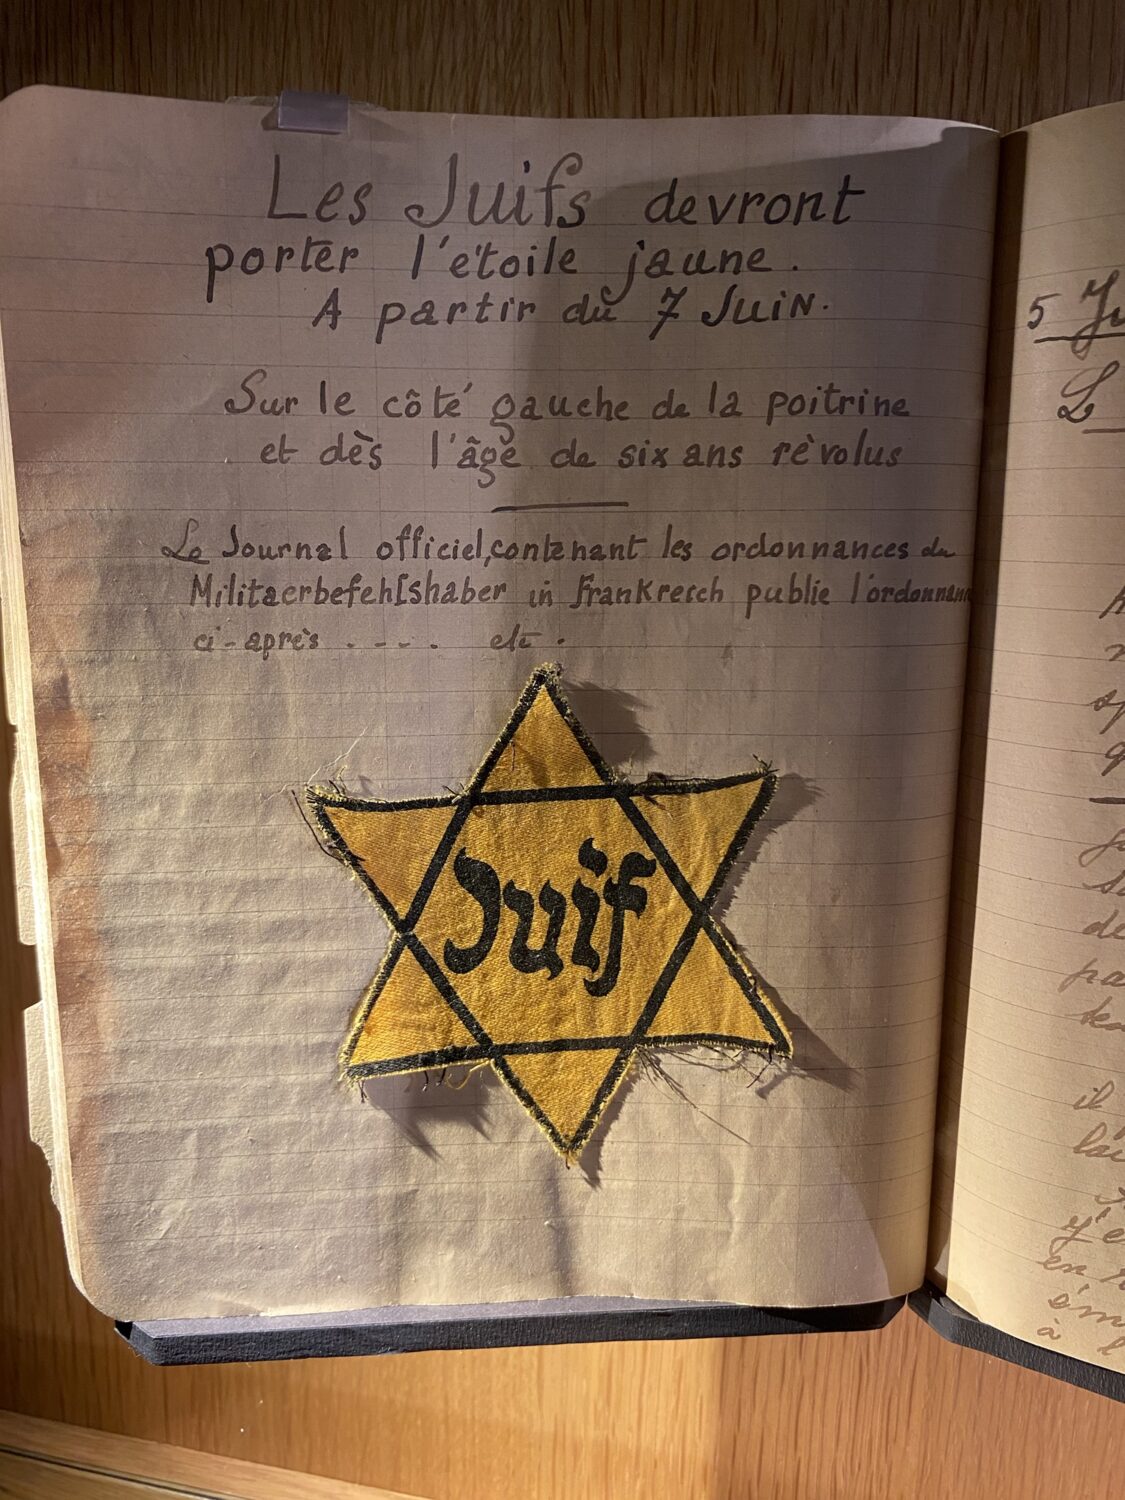 Les Juifs devront
porter l'étoile jaune.
A partir du 7 Juin.
Sur le côté gauche de la poitrine
et dès l'âge de six ans rèvolus
Le Journal officiel, contenant les ordonnances du
Militaerbefehlshaber in Frankreich publie l'ordonnance
ci-après . - - . etc.
Juif
5 Ju
L
il
y'e
à l